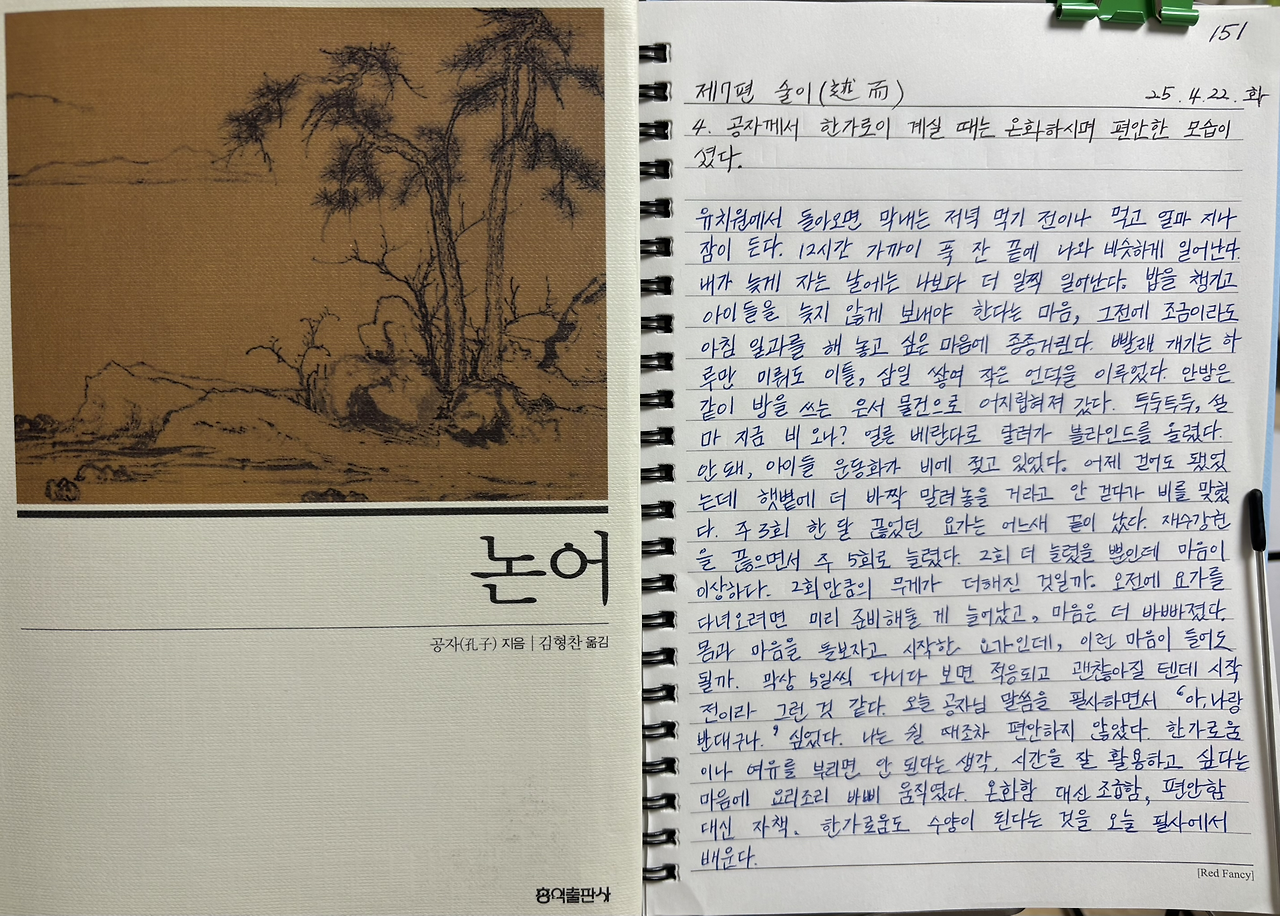 논어
공자(孔子) 지음 | 김형찬 옮김
홍익출판사
151
제7편 술이(述而) 25.4.22.화
4. 공자께서 한가로이 계실 때는 온화하시며 편안한 모습이
셨다.
유치원에서 돌아오면 막내는 저녁 먹기 전이나 먹고 얼마 지나
잠이 든다. 12시간 가까이 푹 잔 끝에 나와 비슷하게 일어난다.
내가 늦게 자는 날에는 나보다 더 일찍 일어난다. 밥을 챙기고
아이들을 늦지 않게 보내야 한다는 마음, 그전에 조금이라도
아침 일과를 해 놓고 싶은 마음에 종종거린다. 빨래 개기는 하
루만 미뤄도 이틀, 삼일 쌓여 작은 언덕을 이루었다. 안방은
같이 방을 쓰는 은서 물건으로 어지럽혀져 갔다. 두둑투둑, 설
마 지금 비 오나? 얼른 베란다로 달려가 블라인드를 올렸다.
안돼, 아이들 운동화가 비에 젖고 있었다. 어제 걷어도 됐었
는데 햇볕에 더 바짝 말려놓을 거라고 안 걷다가 비를 맞혔
다. 주3회 한 달 끊었던 요가는 어느새 끝이 났다. 재수강권
을 끊으면서 주 5회로 늘렸다. 2회 더 늘렸을 뿐인데 마음이
이상하다. 2회만큼의 무게가 더해진 것일까. 오전에 요가를
다녀오려면 미리 준비해둘 게 늘어났고, 마음은 더 바빠졌다.
몸과 마음을 돌보자고 시작한 요가인데, 이런 마음이 들어도
될까. 막상 5일씩 다니다 보면 적응되고 괜찮아질 텐데 시작
전이라 그런 것 같다. 오늘 공자님 말씀을 필사하면서 '아, 나랑
반대구나.' 싶었다. 나는 쉴 때조차 편안하지 않았다. 한가로움
이나 여유를 부리면 안 된다는 생각. 시간을 잘 활용하고 싶다는
마음에 요리조리 바삐 움직였다. 온화함 대신 조급함, 편안함
대신 자책. 한가로움도 수양이 된다는 것을 오늘 필사에서
배운다.
[Red Fancy]